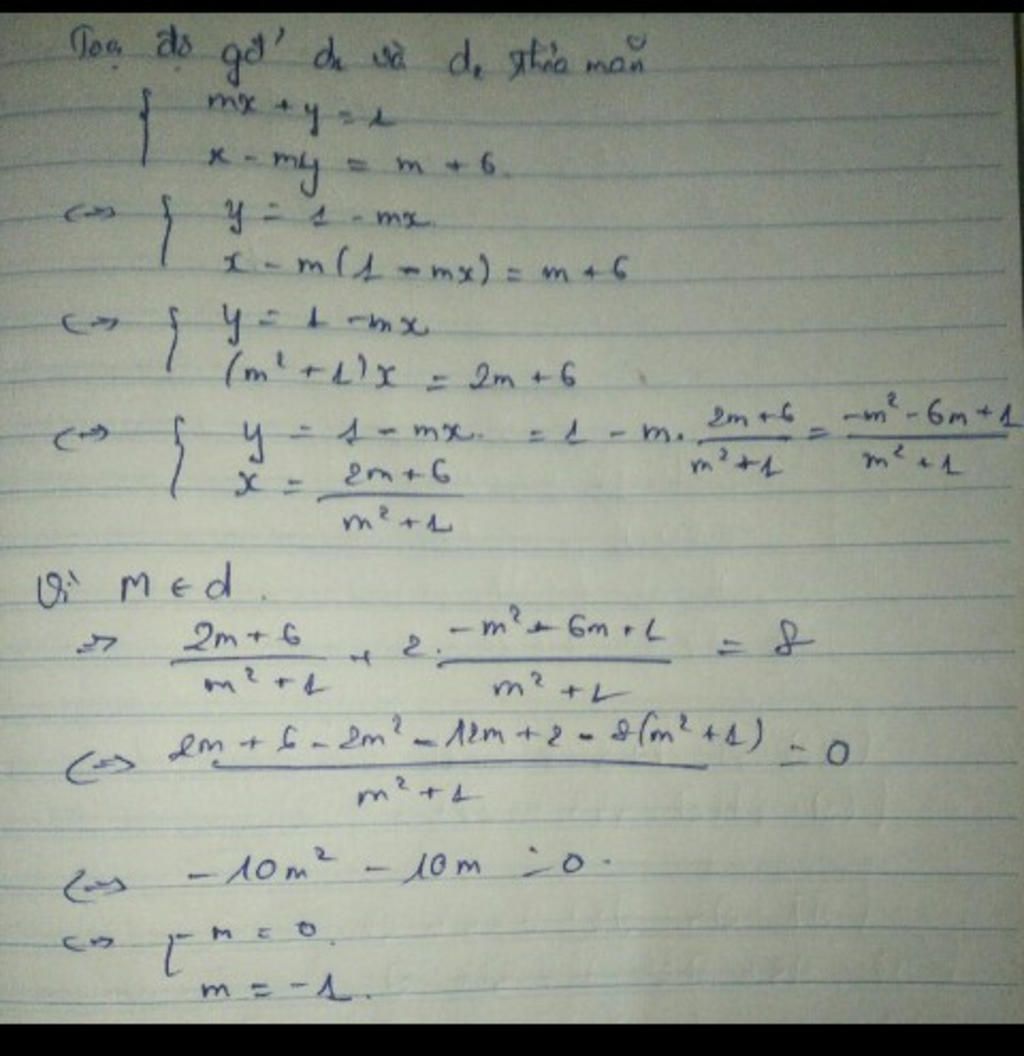 Toạ độ gđ' d₁ và d₂ thỏa mãn
{ mx + y = 1
x - my = m + 6.
<=> { y = 1 - mx
x - m(1 - mx) = m + 6
<=> { y = 1 - mx
(m² + 1)x = 2m + 6
<=> { y = 1 - mx. = 1 - m. (2m+6)/(m²+1) = (-m² - 6m + 1)/(m² + 1)
x = (2m + 6)/(m² + 1)
Vì M ∈ d.
=> (2m + 6)/(m² + 1) + 2. (-m² - 6m + 1)/(m² + 1) = 8
<=> (2m + 6 - 2m² - 12m + 2 - 8(m² + 1))/(m² + 1) = 0
<=> -10m² - 10m = 0.
<=> [ m = 0.
m = -1.